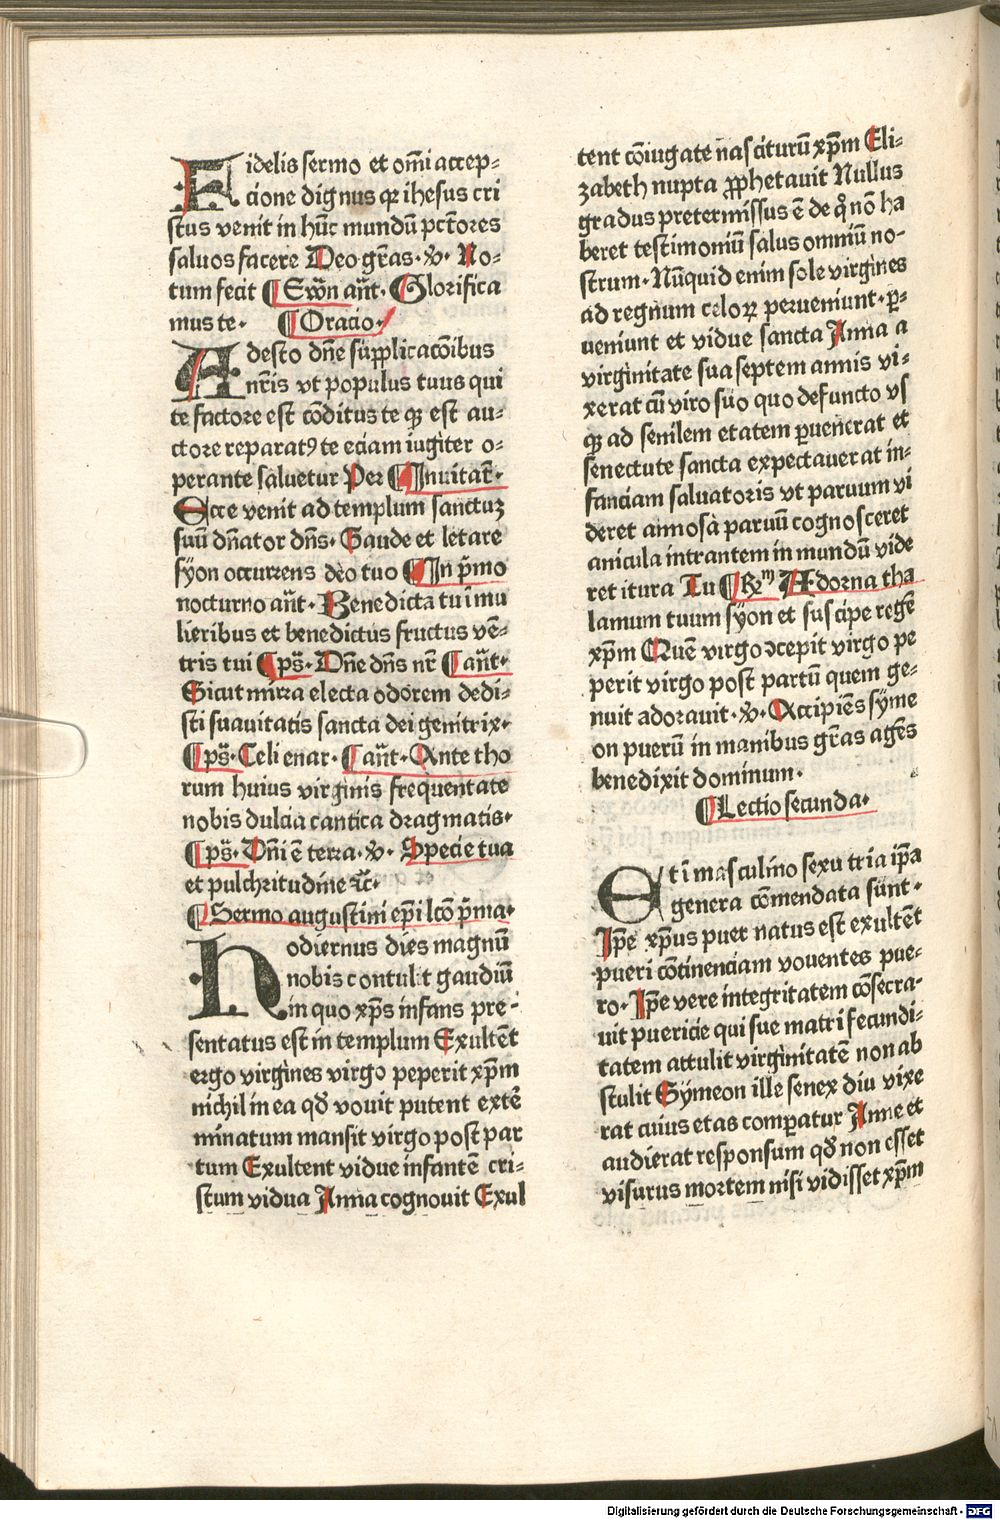 Fidelis sermo et om̄i accep-
cione dignus qꝛ ihesus cri
stus venit in hūc mundū pctōres
saluos facere Deo gr̄as. v̓. No-
tum fecit ¶ Ewn̄ an̄t. Glorifica
mus te. ¶ Oracio.
Adesto dn̄e supplicacōibus
nr̄is vt populus tuus qui
te factore est cōditus te qꝫ est au-
ctore reparatꝰ te eciam iugiter o-
perante saluetur Per ¶ Inuitar̄.
Ecce venit ad templum sanctuꝫ
suū dn̄ator dn̄s. Gaude et letare
syon occurrens deo tuo ¶ In p̄mo
nocturno an̄t. Benedicta tu i mu
lieribus et benedictus fructus vē-
tris tui ¶ ps̄. Dn̄e dn̄s nr̄ ¶ an̄t.
Sicut mirra electa odorem dedi-
sti suauitatis sancta dei genitrix.
¶ ps̄. Celi enar. ¶ an̄t. Ante tho
rum huius virginis frequentate
nobis dulcia cantica dragmatis.
¶ ps̄. Dn̄i ē terra. v̓. Specie tua
et pulchritudine ꝛc̄.
¶ Sermo augustini ep̄i lcō p̄ma.
Hodiernus dies magnū
nobis contulit gaudiū
in quo xp̄s infans pre-
sentatus est in templum Exultēt
ergo virgines virgo peperit xp̄m
nichil in ea qđ vouit putent extē
minatum mansit virgo post par
tum Exultent vidue infantē cri-
stum vidua Anna cognouit Exul
tent cōiugate nasciturū xp̄m Eli-
zabeth nupta ꝓphetauit Nullus
gradus pretermissus ē de q̄ nō ha
beret testimoniū salus omniū no-
strum. Nūquid enim sole virgines
ad regnum celoꝝ perueniunt. ꝑ-
ueniunt et vidue sancta Anna a
virginitate sua septem annis vi-
xerat cū viro suo quo defuncto vs
qꝫ ad senilem etatem ꝑuenerat et
senectute sancta expectauerat in-
fanciam saluatoris vt paruum vi
deret annosa paruū cognosceret
anicula intrantem in mundū vide
ret itura Tu ¶ Rm̄ Adorna tha
lamum tuum syon et suscipe regē
xp̄m Quē virgo ꝯcepit virgo pe
perit virgo post partū quem ge-
nuit adorauit. v̓. Accipiēs syme
on puerū in manibus gr̄as agēs
benedixit dominum.
¶ Lectio secunda.
Et i masculino sexu tria ip̄a
genera cōmendata sunt.
Ip̄e xp̄us puer natus est exultēt
pueri cōtinenciam vouentes pue-
ro. Ip̄e vere integritatem cōsecra-
uit puericie qui sue matri fecundi-
tatem attulit virginitatē non ab
stulit Symeon ille senex diu vixe
rat cuius etas comꝑatur Anne et
audierat responsum qđ non esset
visurus mortem nisi vidisset xp̄m
Digitalisierung gefördert durch die Deutsche Forschungsgemeinschaft - DFG